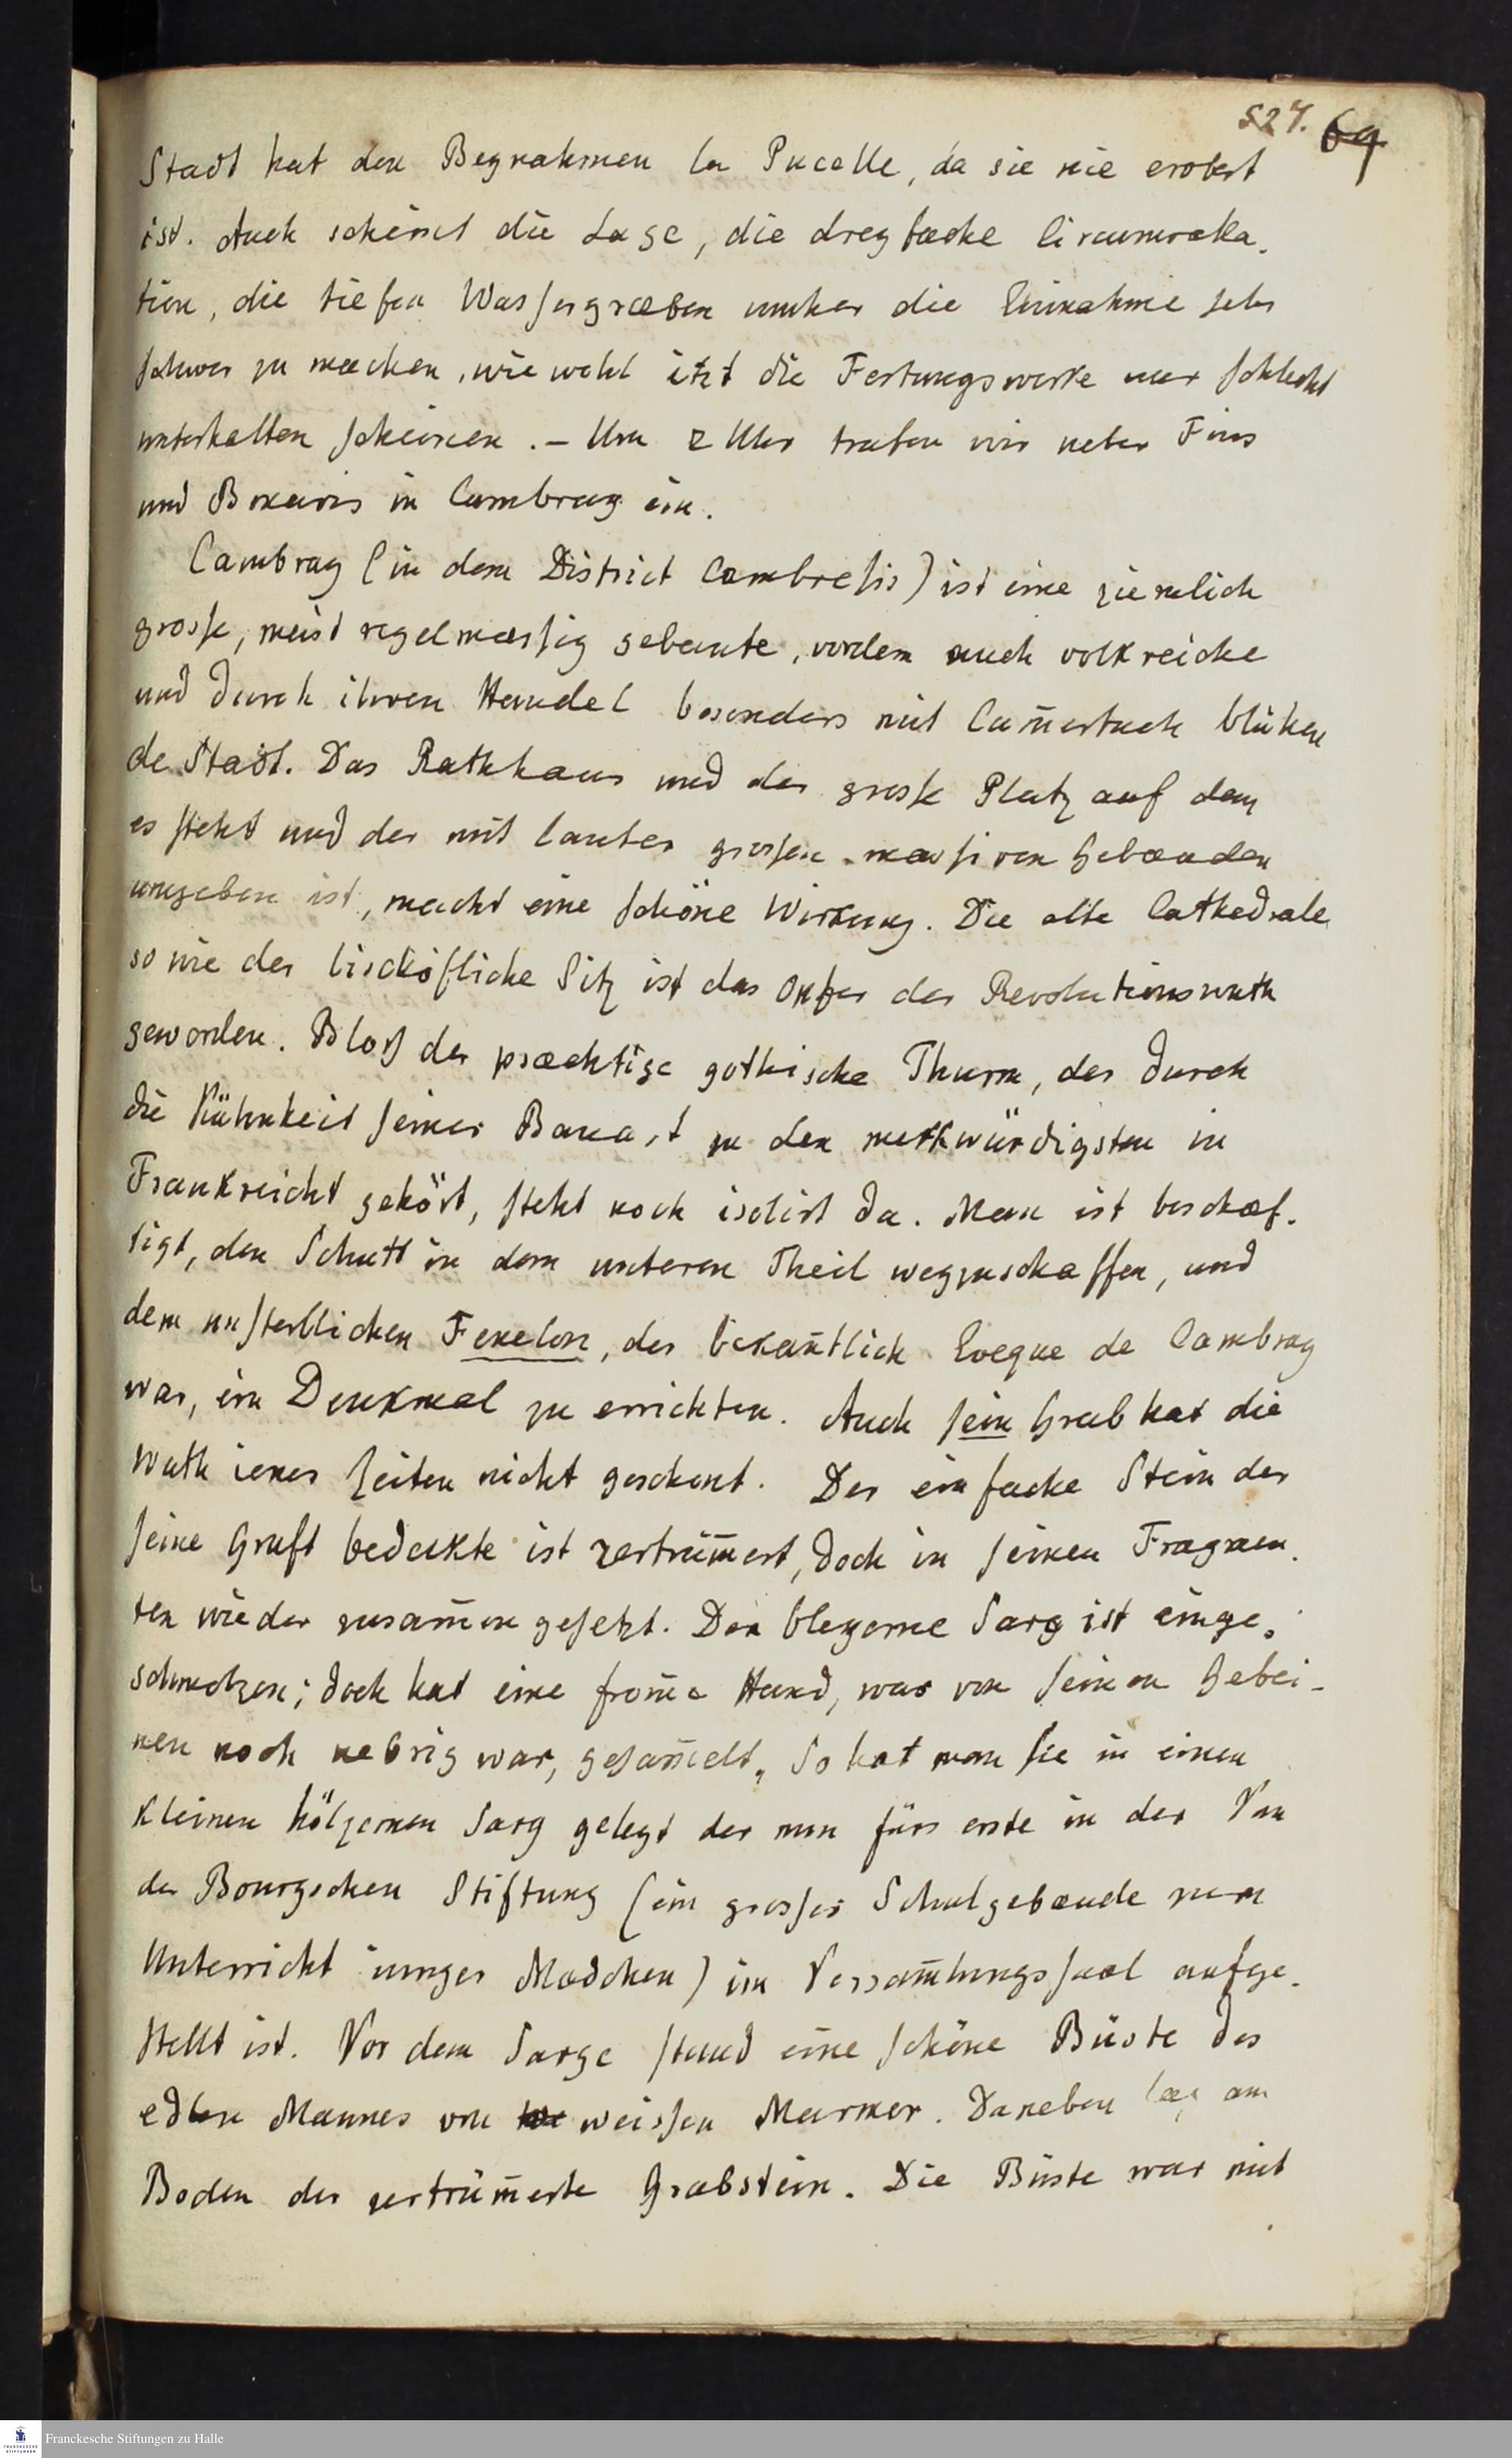 527. 69
Stadt hat den Beynahmen la Pucelle, da sie nie erobert
ist. Auch scheint die Lage, die dreyfache Circumvalla-
tion, die tiefen Wassergræben umher die Einnahme sehr
schwer zu machen, wiewohl itzt die Festungswerke nur schlecht
unterhalten scheinen. – Um 2 Uhr trafen wir ueber Fins
und Bonavis in Cambray ein.
Cambray (in dem District Cambresis) ist eine ziemlich
grosse, meist regelmæssig gebaute, vordem auch volkreiche
und durch ihren Handel besonders mit Cam̄ertuch blühen
de Stadt. Das Rathhaus und der grosse Platz auf dem
es steht und der mit lauter grossen massiven Gebæuden
umgeben ist, macht eine schöne Wirkung. Die alte Cathedrale
so wie der bischöfliche Sitz ist das Opfer der Revolutionswuth
geworden. Bloß der præchtige gothische Thurm, der durch
die Kühnheit seiner Bauart zu den merkwürdigsten in
Frankreicht gehört, steht noch isolirt da. Man ist beschæf-
tigt, den Schutt in dem unteren Theil wegzuschaffen, und
dem unsterblichen Fenelon, der bekan̄tlich Eveque de Cambray
war, ein Denkmal zu errichten. Auch sein Grab hat die
Wuth iener Zeiten nicht geschont. Der einfache Stein der
seine Gruft bedeckte ist zertrüm̄ert, doch in seinen Fragmen-
ten wieder zusam̄en gesetzt. Der bleyerne Sarg ist einge-
schmolzen; doch hat eine from̄e Hand, was von seinen Gebei-
nen noch uebrig war, gesam̄elt, So hat man sie in einen
kleinen hölzernen Sarg gelegt der nun fürs erste in der Van
der Bourgschen Stiftung (ein grosses Schulgebæude zum
Unterricht iunger Mædchen) im Versam̄lungssaal aufge-
stellt ist. Vor dem Sarge stand eine schöne Büste des
edlen Mannes von weissen Marmor. Daneben lag am
Boden der zertrüm̄erte Grabstein. Die Büste war mit
Franckesche Stiftungen zu Halle